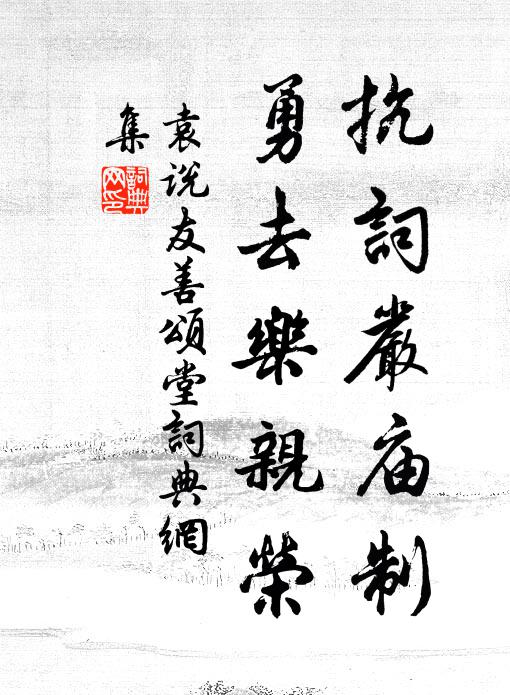 抗詞嚴庙制
勇去樂親榮
袁说友善頌堂詞典網
集
詞典
网印